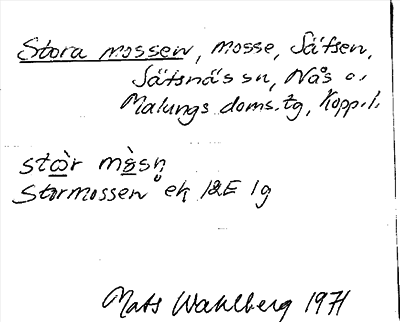 Stora mossen, mosse, Sätsen,
Sätsnäs sn, Nås o.
Malungs doms.tg, Kopp.l.
stὼr mɞ̀sn̥
Stormossen ek 12E 1g
Mats Wahlberg 1971